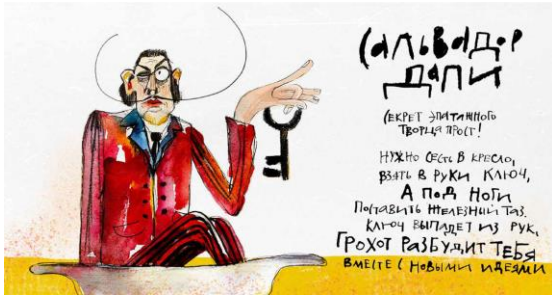 САЛЬВАДОР
ДАЛИ
СЕКРЕТ ЭПАТАЖНОГО
ТВОРЦА ПРОСТ!
НУЖНО СЕСТЬ В КРЕСЛО,
ВЗЯТЬ В РУКИ КЛЮЧ,
А ПОД НОГИ
ПОСТАВИТЬ ЖЕЛЕЗНЫЙ ТАЗ.
КЛЮЧ ВЫПАДЕТ ИЗ РУК,
ГРОХОТ РАЗБУДИТ ТЕБЯ
ВМЕСТЕ С НОВЫМИ ИДЕЯМИ